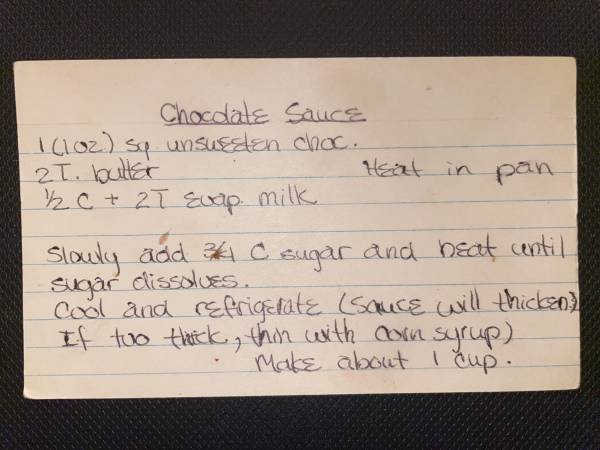 Chocolate Sauce
1 (1oz.) sq unsweeten choc.
2T. butter Heat in pan
½ C + 2T evap. milk
Slowly add ¾ C sugar and heat until
sugar dissolves.
Cool and refrigerate (sauce will thicken.)
If too thick, thin with corn syrup)
Make about 1 cup.